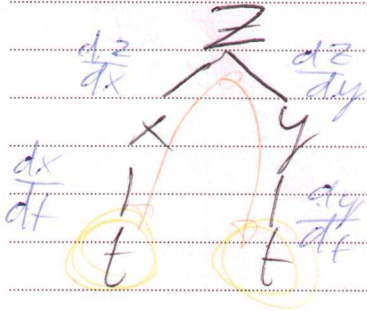 Z
dz/dx dz/dy
x y
dx/dt dy/dt
t t